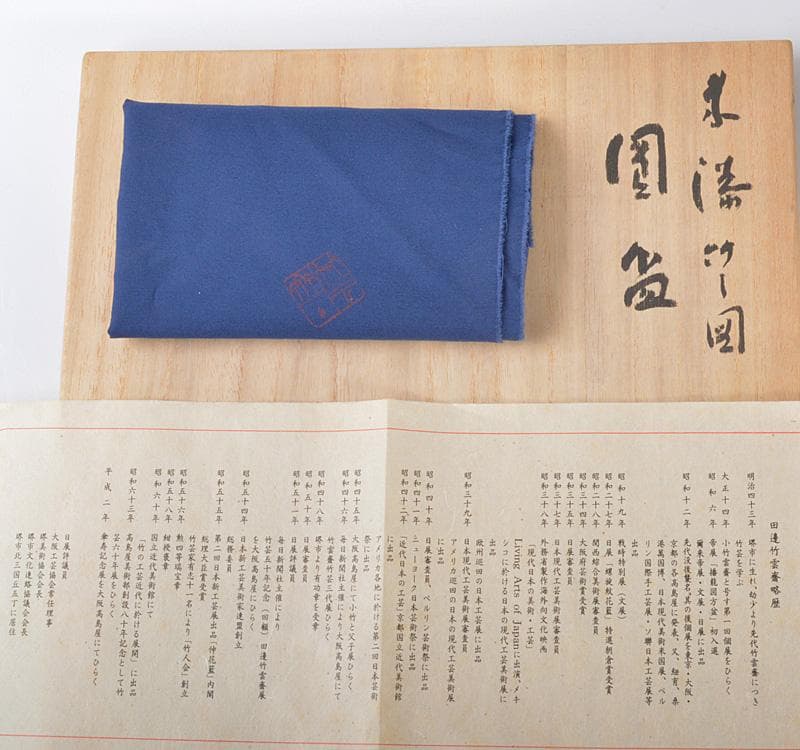 朱漆竹図
圓盆
田邊竹雲齋略歴
明治四十三年 堺市に生れ、幼少より先代竹雲齋につき
竹芸を学ぶ
大正十四年 小竹雲齋と号す第一回個展をひらく
昭和六年 帝展 初入選
爾来帝展・文展・日展に出品
昭和十二年 先代没後襲名、其の後個展を東京・大阪・
京都の各高島屋に発表、又、紐育、桑
港萬国博、日本現代美術米国展、ベル
リン国際手工芸展・ソ聯日本工芸展等
出品
昭和十九年 戦時特別展（文展）
昭和二十七年 日展「螺旋紋花籃」特選朝倉賞受賞
昭和二十八年 関西綜合美術展審査員
大阪府芸術賞受賞
昭和三十五年 日展審査員
日本現代工芸美術展審査員
昭和三十八年 外務省製作海外向文化映画
「現代日本の美術・工芸」
Living Arts of Japanに出演、メキ
シコに於ける日本の現代工芸美術展に
出品
昭和三十九年 欧州巡回の日本工芸展に出品
日本現代工芸美術展
アメリカ巡回の日本の現代工芸美術展
に出品
昭和四十年 日展審査員、ベルリン芸術祭に出品
昭和四十一年 ニューヨーク日本芸術祭に出品
昭和四十二年 「近代日本の工芸」京都国立近代美術館
に出品
アメリカ各地に於ける第二回日本芸術
祭に出品
昭和四十五年 大阪高島屋にて小竹と父子展ひらく
昭和四十六年 毎日新聞社主催により大阪高島屋にて
竹雲齋竹芸三代展ひらく
昭和四十八年 堺市より有功章を受章
昭和五十年 日展審査員
昭和五十二年 日展評議員
毎日新聞社主催により
竹芸五十年記念（回顧）田邊竹雲齋展
を大阪高島屋にひらく
昭和五十四年 日本新工芸美術家連盟創立
総務委員
昭和五十五年 第二回日本新工芸展出品 内閣
総理大臣賞受賞
昭和五十六年 竹芸家有志十一名により「竹人会」創立
昭和五十八年 勲四等瑞宝章
紺綬褒章
昭和六十年 国立近代美術館にて
「竹の工芸近代に於ける展開」に出品
昭和六十三年 高島屋美術部創設八十年記念として竹
芸六十年展をひらく
平成二年 傘寿記念展を大阪高島屋にてひらく
日展評議員
大阪工芸協会常任理事
堺美術協会会長
堺市文化連絡協議会会長
堺市北三国丘五丁に居住